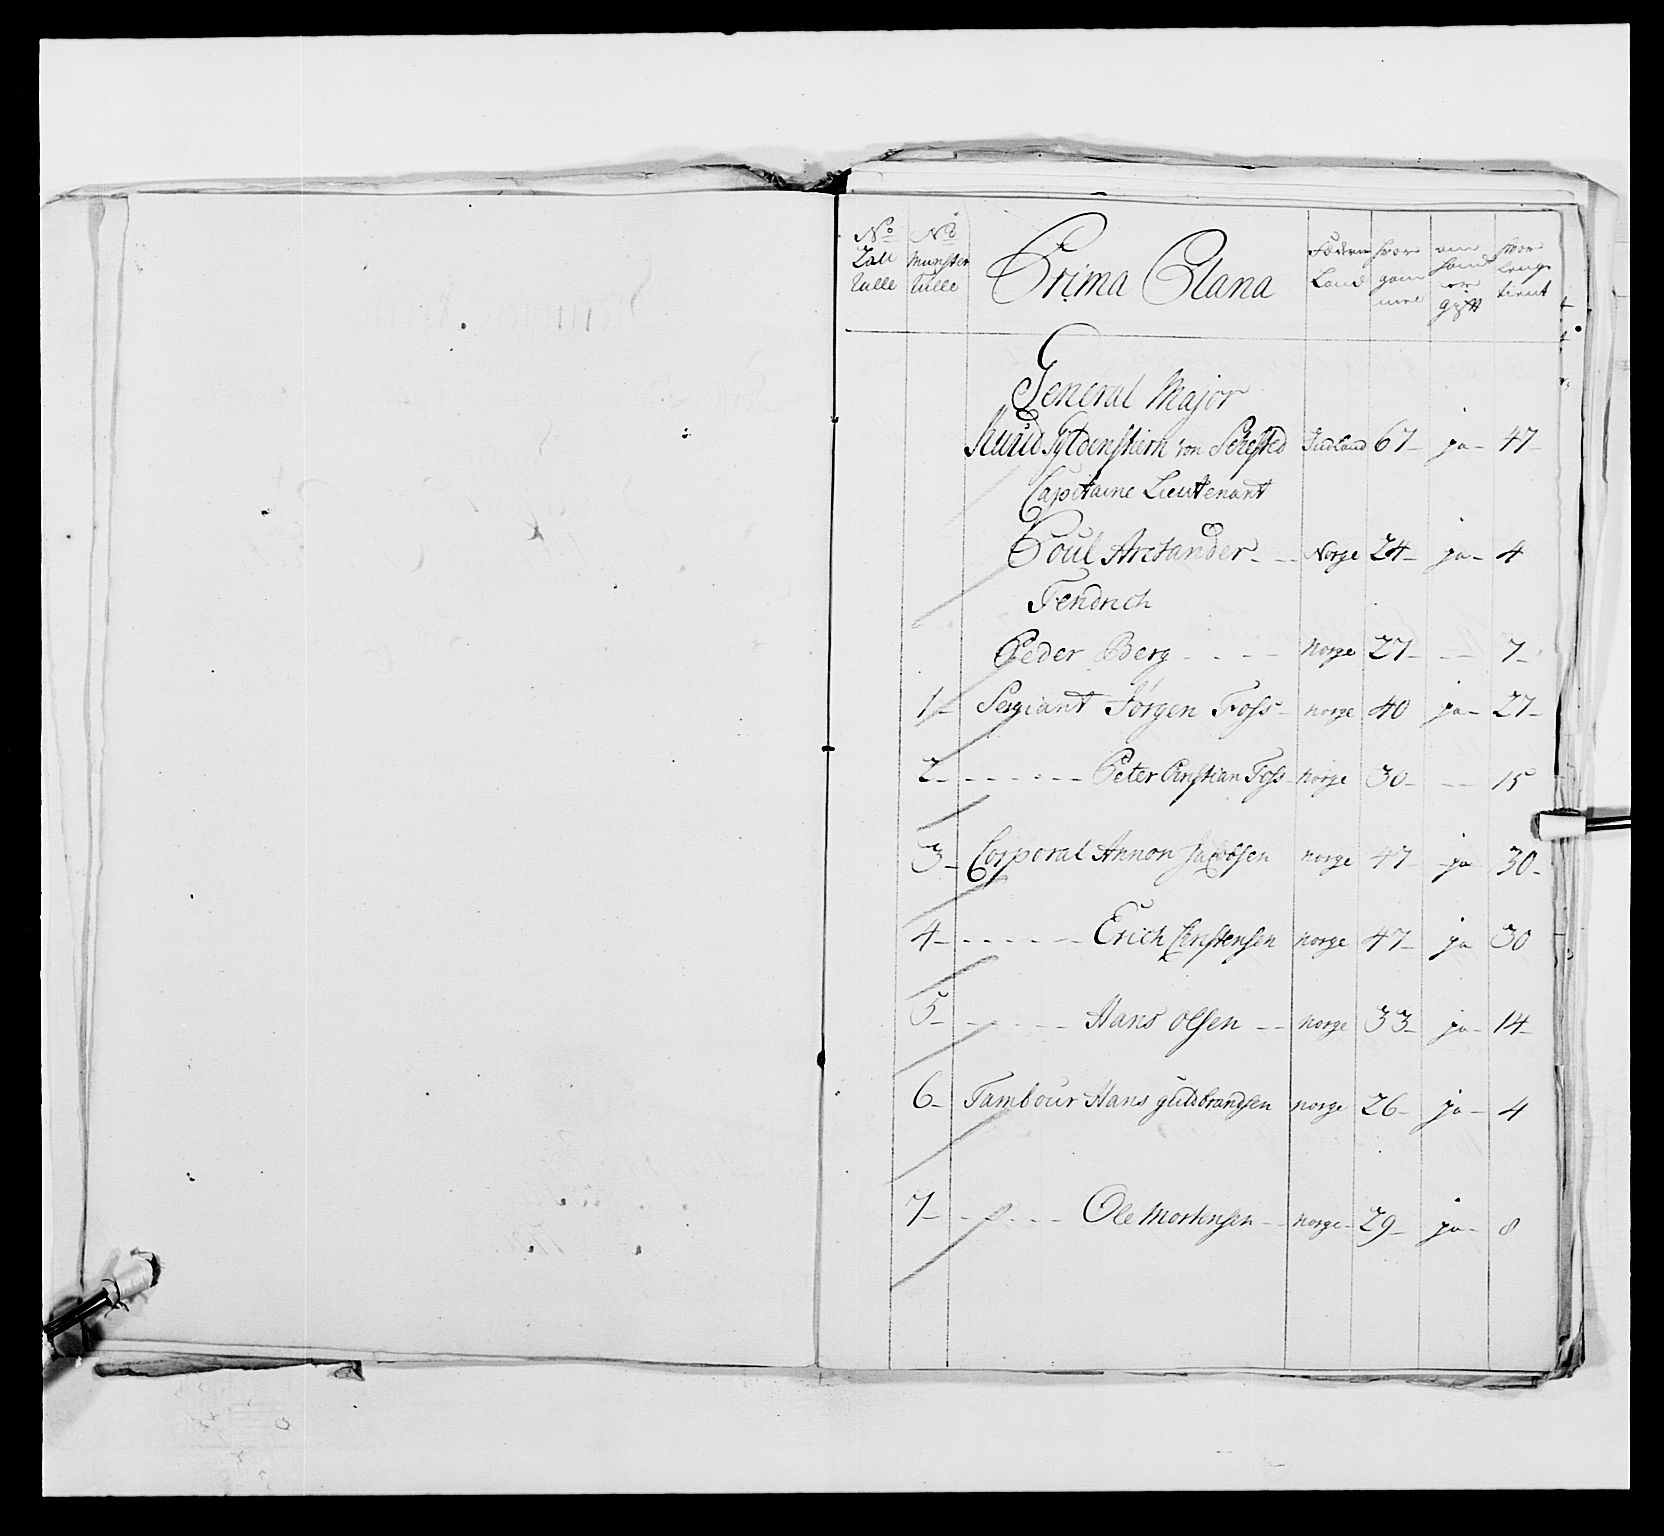 No Zall Rulle | No Munster Rulle | Prima Plana | Fæderne Land | hvor gam mel | om hand er gift | hvor lenge tient
General Major
Knud Gyldenstiern von Sehested Judland 67 - ja - 47 -
Capitaine Lieutenant
Poul Arctander - - Norge 24 - ja - 4
Fendrich
Peder Berg - - - - Norge 27 - - - 7 -
1 - Sergiant Jørgen Foss - norge 40 ja - 27 -
2 - - - - - - - Peter Christian Foss norge 30 - - - 15
3 - Corporal Annon Jacobsen norge 47 - ja 30 -
4 - - - - - - - Erich Christensen norge 47 - ja 30
5 - - - - - - Hans Olsen - - norge 33 - ja - 14 -
6 - Tambour Hans gulbrandsen norge 26 - ja - 4
7 - - - - - Ole Mortensen - norge - 29 - ja - 8